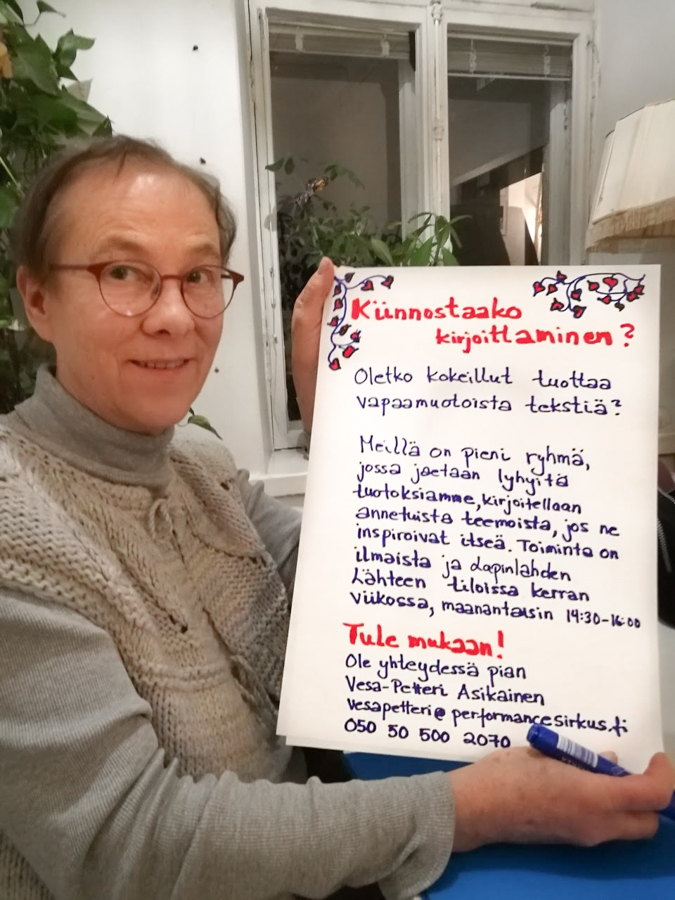 Kiinnostaako
kirjoittaminen?
Oletko kokeillut tuottaa
vapaamuotoista tekstiä?
Meillä on pieni ryhmä,
jossa jaetaan lyhyitä
tuotoksiamme, kirjoitellaan
annetuista teemoista, jos ne
inspiroivat itseä. Toiminta on
ilmaista ja Lapinlahden
Lähteen tiloissa kerran
viikossa, maanantaisin 14:30-16:00
Tule mukaan!
Ole yhteydessä pian
Vesa-Petteri Asikainen
vesapetteri@performancesirkus.fi
050 50 500 2070